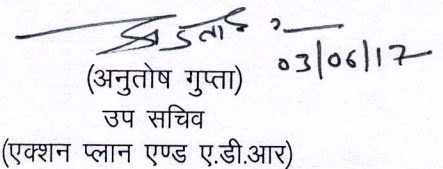 03/06/17
(अनुतोष गुप्ता)
उप सचिव
(एक्शन प्लान एण्ड ए.डी.आर)